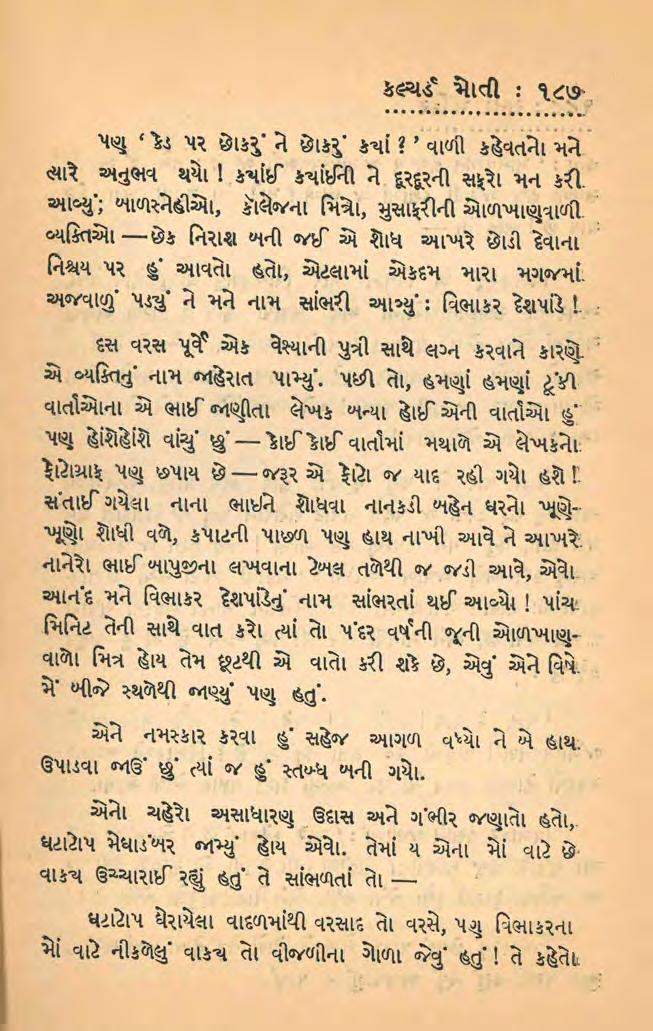 કલ્ચર્ડ મોતી : ૧૮૭
પણ ‘કેડ પર છોકરું ને છોકરું ક્યાં ?’ વાળી કહેવતનો મને
ત્યારે અનુભવ થયો ! ક્યાંઈ ક્યાંઈની ને દૂરદૂરની સફરો મન કરી
આવ્યું; બાળસ્નેહીઓ, કૉલેજના મિત્રો, મુસાફરીની ઓળખાણવાળી
વ્યક્તિઓ — છેક નિરાશ બની જઈ એ શોધ આખરે છોડી દેવાના
નિશ્ચય પર હું આવતો હતો, એટલામાં એકદમ મારા મગજમાં
અજવાળું પડ્યું ને મને નામ સાંભરી આવ્યું : વિભાકર દેશપાંડે !
દસ વરસ પૂર્વે એક વેશ્યાની પુત્રી સાથે લગ્ન કરવાને કારણે
એ વ્યક્તિનું નામ જાહેરાત પામ્યું. પછી તો, હમણાં હમણાં ટૂંકી
વાર્તાઓના એ ભાઈ જાણીતા લેખક બન્યા હોઈ એની વાર્તાઓ હું
પણ હોંશેહોંશે વાંચું છું — કોઈ કોઈ વાર્તામાં મથાળે એ લેખકનો
ફોટોગ્રાફ પણ છપાય છે — જરૂર એ ફોટો જ યાદ રહી ગયો હશે !
સંતાઈ ગયેલા નાના ભાઈને શોધવા નાનકડી બહેન ઘરનો ખૂણે-
ખૂણો શોધી વળે, કપાટની પાછળ પણ હાથ નાખી આવે ને આખરે
નાનેરો ભાઈ બાપુજીના લખવાના ટેબલ તળેથી જ જડી આવે, એવો
આનંદ મને વિભાકર દેશપાંડેનું નામ સાંભરતાં થઈ આવ્યો ! પાંચ
મિનિટ તેની સાથે વાત કરો ત્યાં તો પંદર વર્ષની જૂની ઓળખાણ-
વાળો મિત્ર હોય તેમ છૂટથી એ વાતો કરી શકે છે, એવું એને વિષે
મેં બીજે સ્થળેથી જાણ્યું પણ હતું.
એને નમસ્કાર કરવા હું સહેજ આગળ વધ્યો ને બે હાથ
ઉપાડવા જાઉં છું ત્યાં જ હું સ્તબ્ધ બની ગયો.
એનો ચહેરો અસાધારણ ઉદાસ અને ગંભીર જણાતો હતો,
ઘટાટોપ મેઘાડંબર જામ્યું હોય એવો. તેમાં ય એના મોં વાટે છે
વાક્ય ઉચ્ચારાઈ રહ્યું હતું તે સાંભળતાં તો —
ઘટાટોપ ઘેરાયેલા વાદળમાંથી વરસાદ તો વરસે, પણ વિભાકરના
મોં વાટે નીકળેલું વાક્ય તો વીજળીના ગોળા જેવું હતું ! તે કહેતો